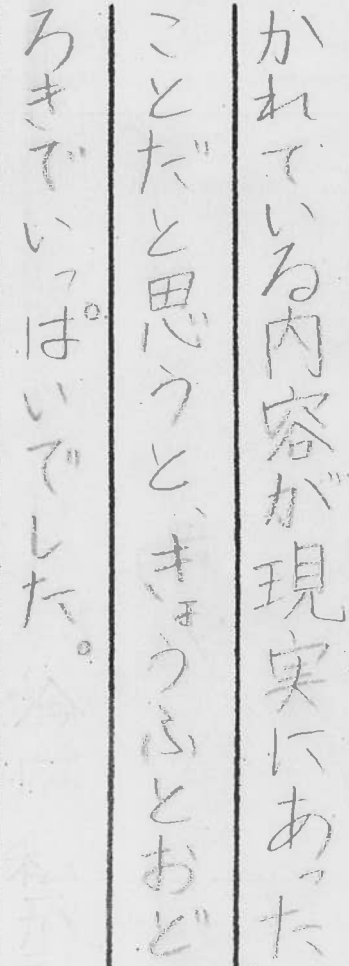 かれている内容が現実にあった
ことだと思うと、きょうふとおど
ろきでいっぱいでした。